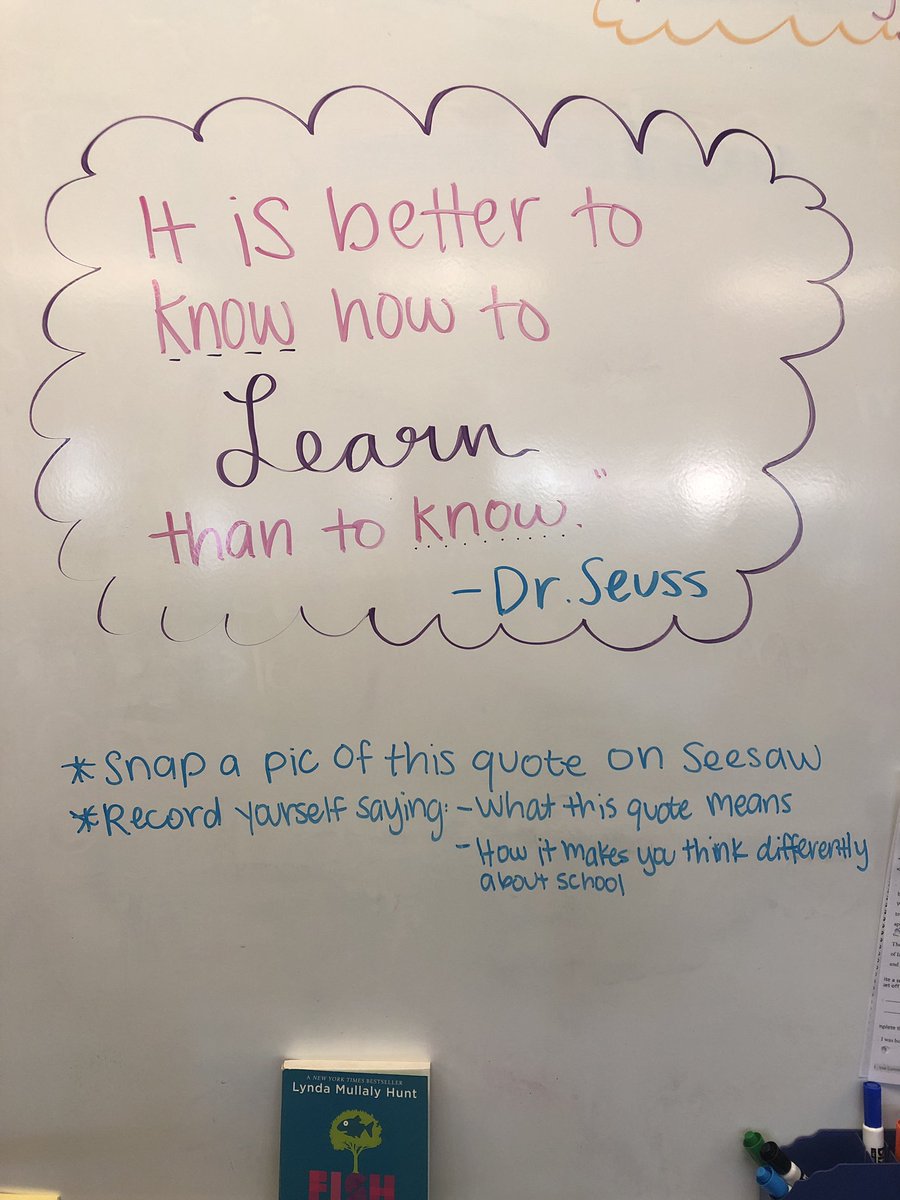 It is better to
know how to
Learn
than to know."
-Dr. Seuss
*Snap a pic of this quote on Seesaw
*Record yourself saying: -What this quote means
-How it makes you think differently
about school
A NEW YORK TIMES BESTSELLER
Lynda Mullaly Hunt
FISH